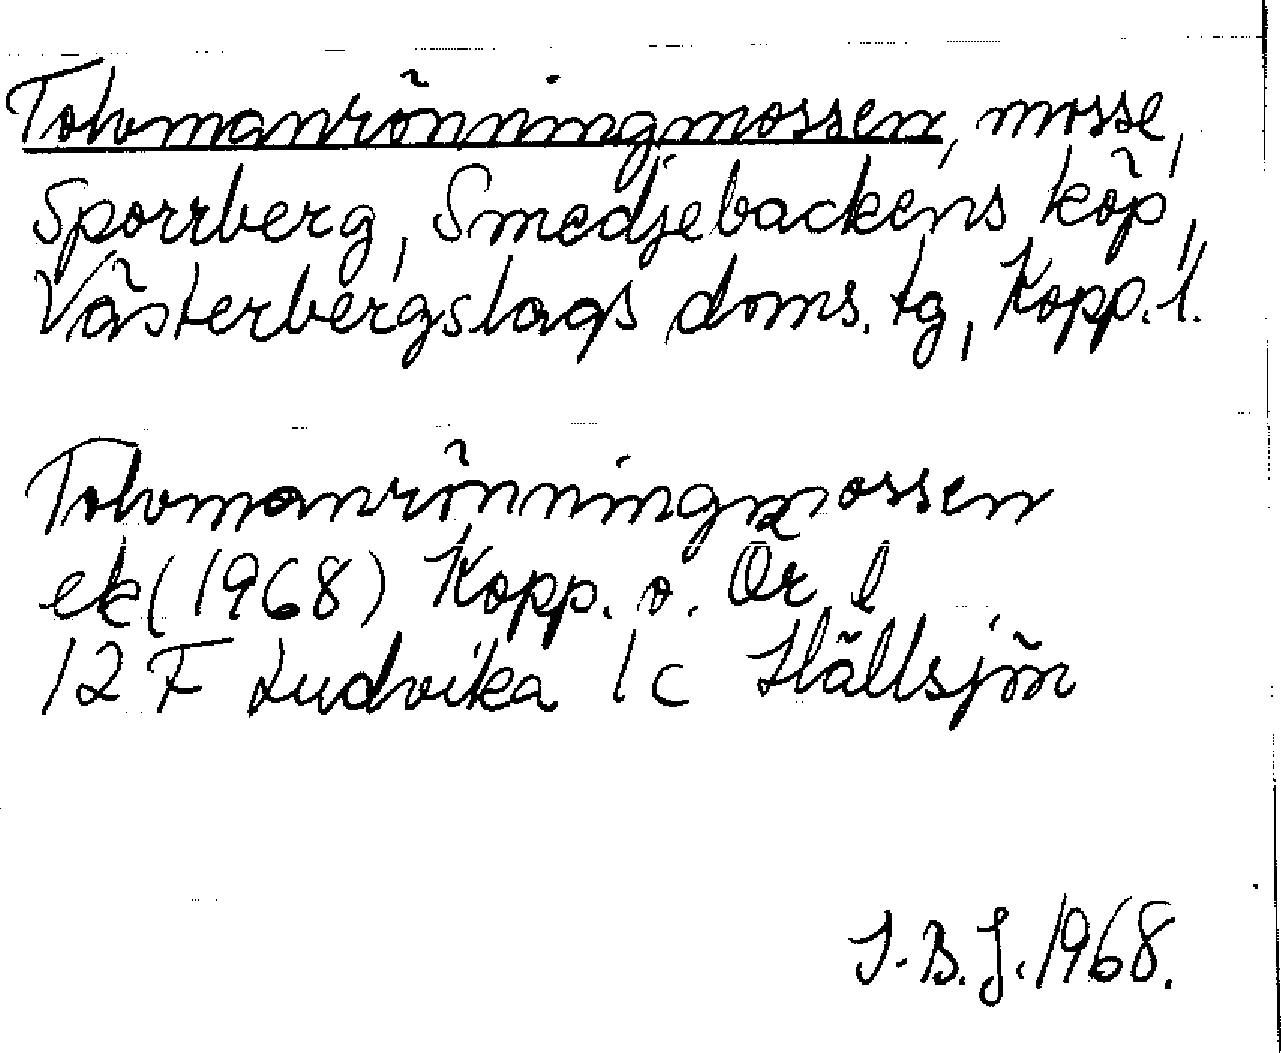 Tolvmanrönningmossen, mosse,
Sporrberg, Smedjebackens köp,
Västerbergslags doms. tg, Kopp. l.
Tolvmanrönningmossen
ek (1968) Kopp. o. Ör l
12 F Ludvika 1 c Hällsjön
I. B. J. 1968.